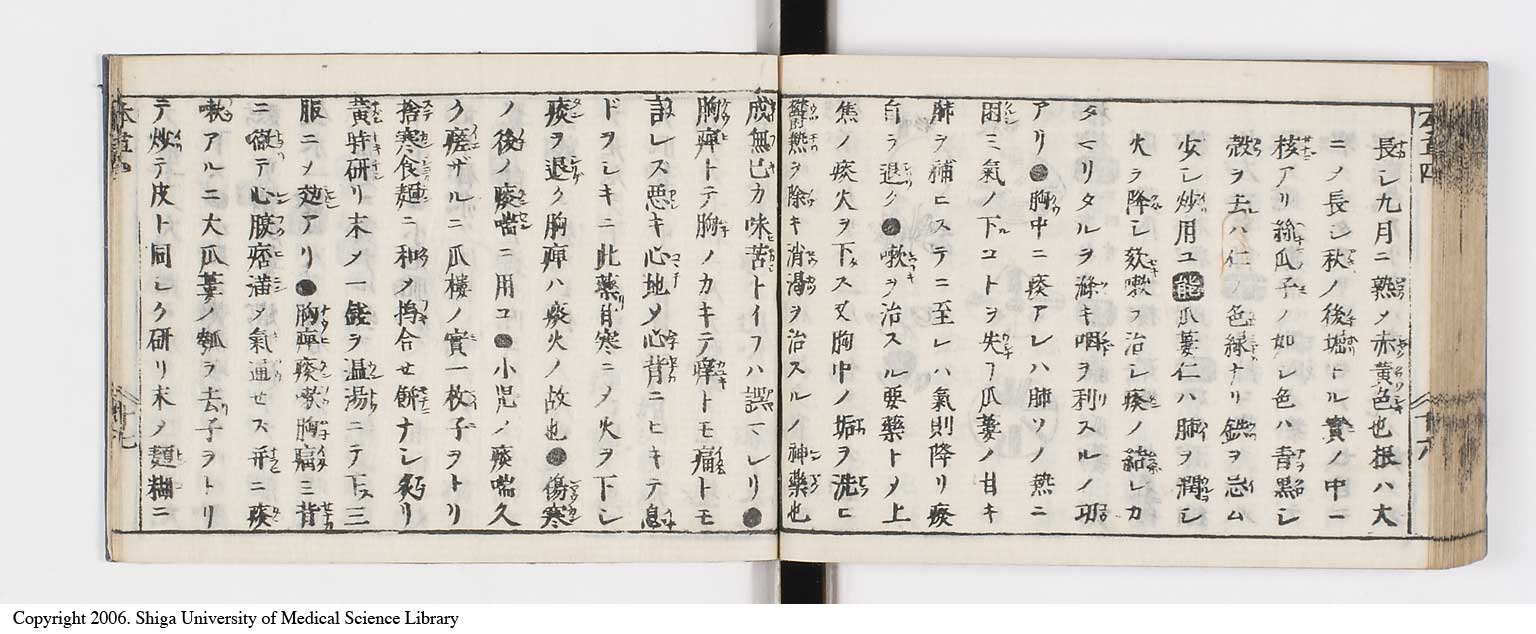 長シ九月ニ熟メ赤黄色也根ハ大
ニノ長シ秋ノ後堀トル實ノ中ニ
核アリ絲瓜子ノ如シ色ハ青黒シ
殻ヲ去ハ仁ノ色緑ナリ鉄ヲ忌ム
少シ炒用ユ 能 瓜蔞仁ハ肺ヲ潤シ
火ヲ降シ欬嗽ヲ治シ痰ノ結レカ
タマリタルヲ滌キ咽ヲ利スルノ功
アリ●胸中ニ痰アレハ肺ソノ熱ニ
困ミ氣ノ下コトヲ失フ瓜蔞ノ甘キ
肺ヲ補ヒステニ至レハ氣則降リ痰
自ラ退ク●嗽ヲ治スル要藥トメ上
焦ノ痰火ヲ下ス又胸中ノ垢ヲ洗ヒ
欝熱ヲ除キ消渇ヲ治スルノ神藥也
成無已カ味苦トイフハ誤マレリ●
胸痺トテ胸ノカキテ痺トモ痛トモ
レス悪キ心地メ心背ニヒキテ息
ドヲシキニ此藥甘寒ニメ火ヲ下シ
痰ヲ退ク胸痺ハ痰火ノ故也●傷寒
ノ後ノ痰喘ニ用ユ●小児ノ痰喘久
ク瘥ザルニ瓜楼ノ實一枚子ヲトリ
捨寒食麺ニ和メ搗合セ餅ナシ炙リ
黄時研リ末メ一銭ヲ温湯ニテ下ス三
服ニメ効アリ●胸痺痰嗽胸痛ミ背
ニ徹テ心腹痞満メ氣通セス并ニ痰
嗽アルニ大瓜蔞ノ瓤ヲ去子ヲトリ
テ炒テ皮ト同シク研リ末メ麺糊ニ
本草四
十六
本草四
十七
Copyright 2006. Shiga University of Medical Science Library